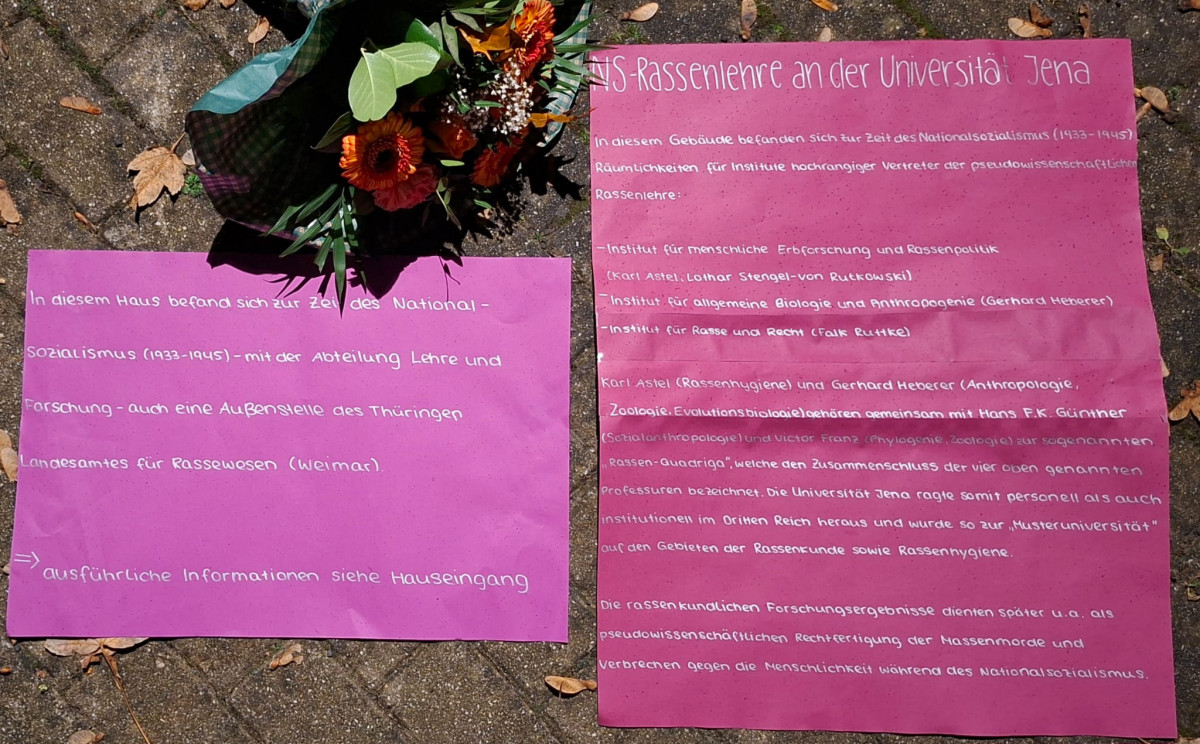 In diesem Haus befand sich zur Zeit des National-
Sozialismus (1933-1945) - mit der Abteilung Lehre und
Forschung - auch eine Außenstelle des Thüringer
Landesamtes für Rassewesen (Weimar).
=> ausführliche Informationen siehe Hauseingang
NS-Rassenlehre an der Universität Jena
In diesem Gebäude befanden sich zur Zeit des Nationalsozialismus (1933-1945)
Räumlichkeiten für Institute hochrangiger Vertreter der pseudowissenschaftlichen
Rassenlehre:
-Institut für menschliche Erbforschung und Rassenpolitik
(Karl Astel, Lothar Stengel-von Rutkowski)
-Institut für allgemeine Biologie und Anthropogenie (Gerhard Heberer)
-Institut für Rasse und Recht (Falk Ruttke)
Karl Astel (Rassenhygiene) und Gerhard Heberer (Anthropologie,
Zoologie, Evolutionsbiologie) gehören gemeinsam mit Hans F.K. Günther
(Sozialanthropologie) und Victor Franz (Phylogenie, Zoologie) zur sogenannten
„Rassen-Quadriga", welche den Zusammenschluss der vier oben genannten
Professuren bezeichnet. Die Universität Jena ragte somit personell als auch
institutionell im Dritten Reich heraus und wurde so zur „Musteruniversität"
auf den Gebieten der Rassenkunde sowie Rassenhygiene.
Die rassenkundlichen Forschungsergebnisse dienten später u.a. als
pseudowissenschaftlichen Rechtfertigung der Massenmorde und
Verbrechen gegen die Menschlichkeit während des Nationalsozialismus.